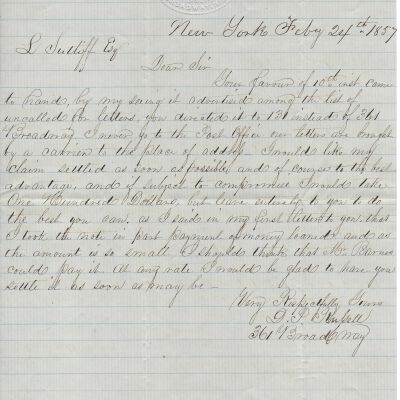 BROADWAY
New York Feby 24th 1857
L Sutliff Esq
Dear Sir
Your Favour of 10th inst came
to hand, by my seeing it advertised among the list of
uncalled for letters, you directed it to 131 instead of 361
Broadway I never go to the Post Office our letters are brought
by a carrier to the place of address I would like my
claim settled as soon as possible and of course to the best
advantage, and if subject to compromise I would take
One Hundred Dollars, but leave entirely to you to do
the best you can, as I said in my first letter to you, that
I took the note in part payment of money loaned and as
the amount is so small I should think that Mr. Barnes
could pay it At any rate I would be glad to have you
settle it as soon as may be —
Very Respectfully Yours
Russell
361 Broadway